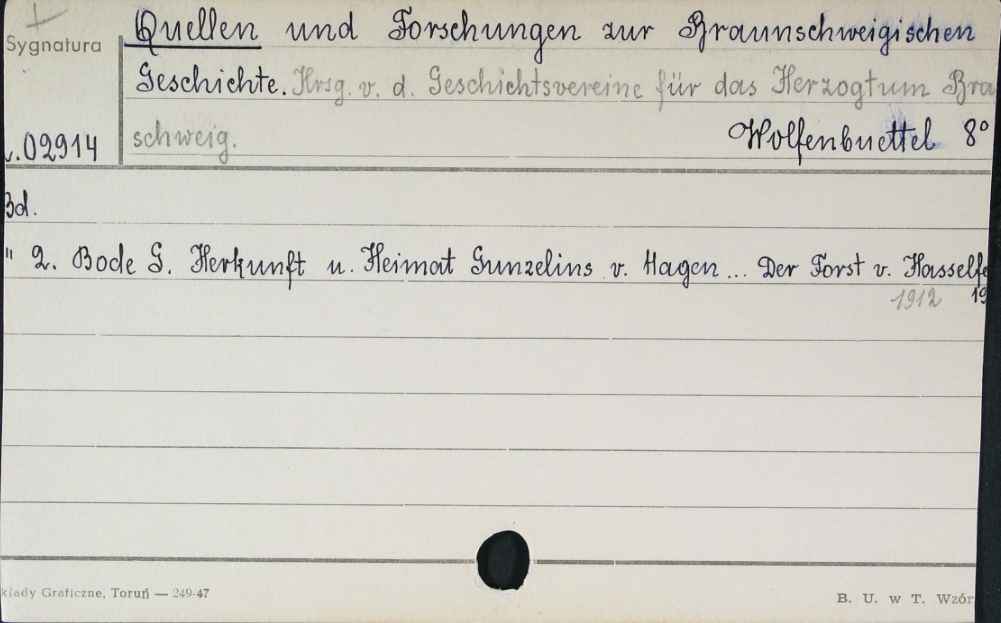 Quellen und Forschungen zur Braunschweigischen
Sygnatura
Geschichte. Hrsg. v. d. Geschichtsvereine für das Herzogtum Bra
schweig.
Wolfenbuettel 8°
.02914
Bd.
" 2. Bode G. Herkunft u. Heimat Gunzelins v. Hagen ... Der Forst v. Hasselfe
1912 19
kłady Graficzne, Toruń — 249-47
B. U. w T. Wzór